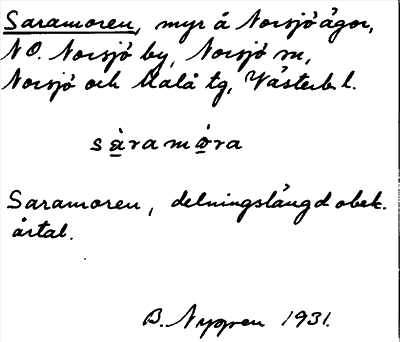 Saramoren, myr å Norsjö ägor,
NO. Norsjö by, Norsjö sn,
Norsjö och Malå tg, Västerb. l.
sàramóra
Saramoren, delningslängd obek.
årtal.
B. Nygren 1931.